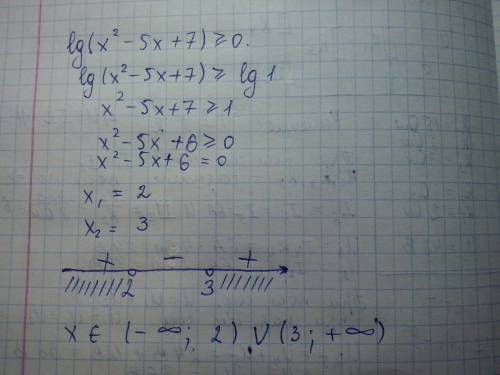 lg(x² - 5x + 7) ≥ 0.
lg(x² - 5x + 7) ≥ lg 1
x² - 5x + 7 ≥ 1
x² - 5x + 6 ≥ 0
x² - 5x + 6 = 0
x₁ = 2
x₂ = 3
+ - +
2 3
x ∈ (-∞; 2) ∪ (3; +∞)